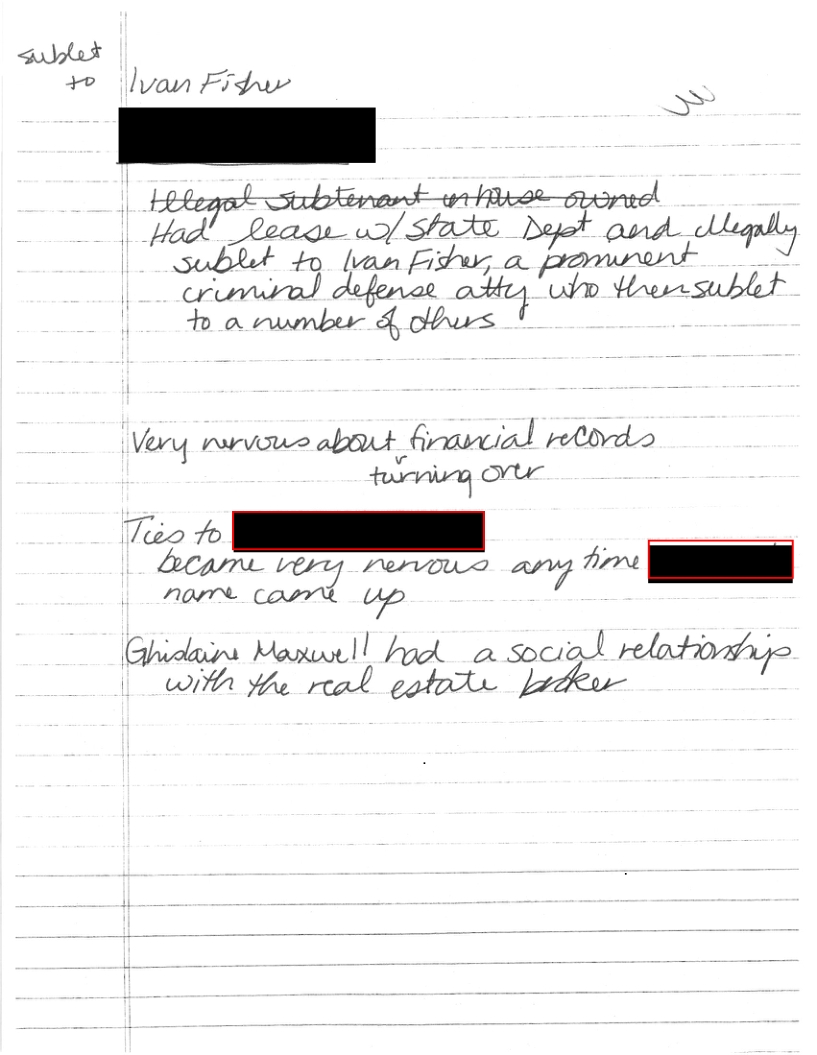 sublet
to Ivan Fisher
Illegal subtenant in house owned
Had lease w/ State Dept and illegally
sublet to Ivan Fisher, a prominent
criminal defense atty who then sublet
to a number of others
Very nervous about financial records
turning over
Ties to
became very nervous any time
name came up
Ghislaine Maxwell had a social relationship
with the real estate broker